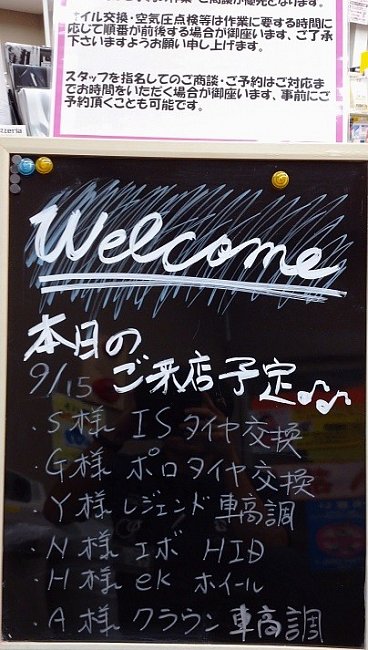 オイル交換・空気圧点検等は作業に要する時間に
応じて順番が前後する場合が御座います、ご了承
下さいますようお願い申し上げます。
スタッフを指名してのご商談・ご予約はご対応まで
お時間をいただく場合が御座います、事前にご
予約頂くことも可能です。
Welcome
本日の
9/15 ご来店予定♪♪
・S様 IS タイヤ交換
・G様 ポロタイヤ交換
・Y様 レジェンド 車高調
・N様 エボ HID
・H様 ek ホイール
・A様 クラウン 車高調